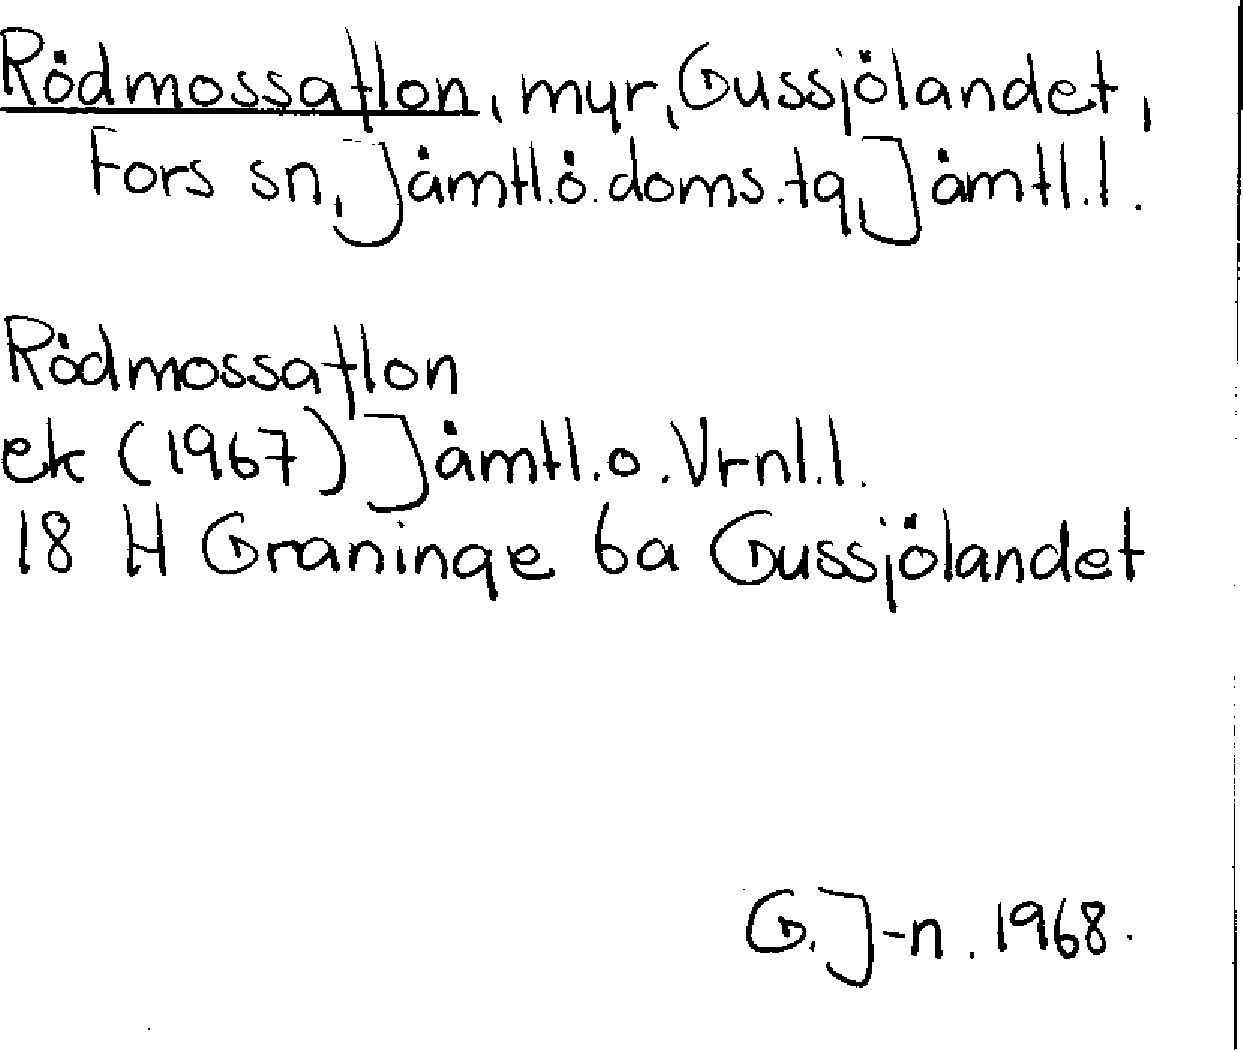 Rödmossaflon, myr, Gussjölandet,
Fors sn, Jämtl.ö.doms.tg, Jämtl.l.
Rödmossaflon
ek (1967) Jämtl.o.Vrnl.l.
18 H Graninge 6a Gussjölandet
G.J-n. 1968.